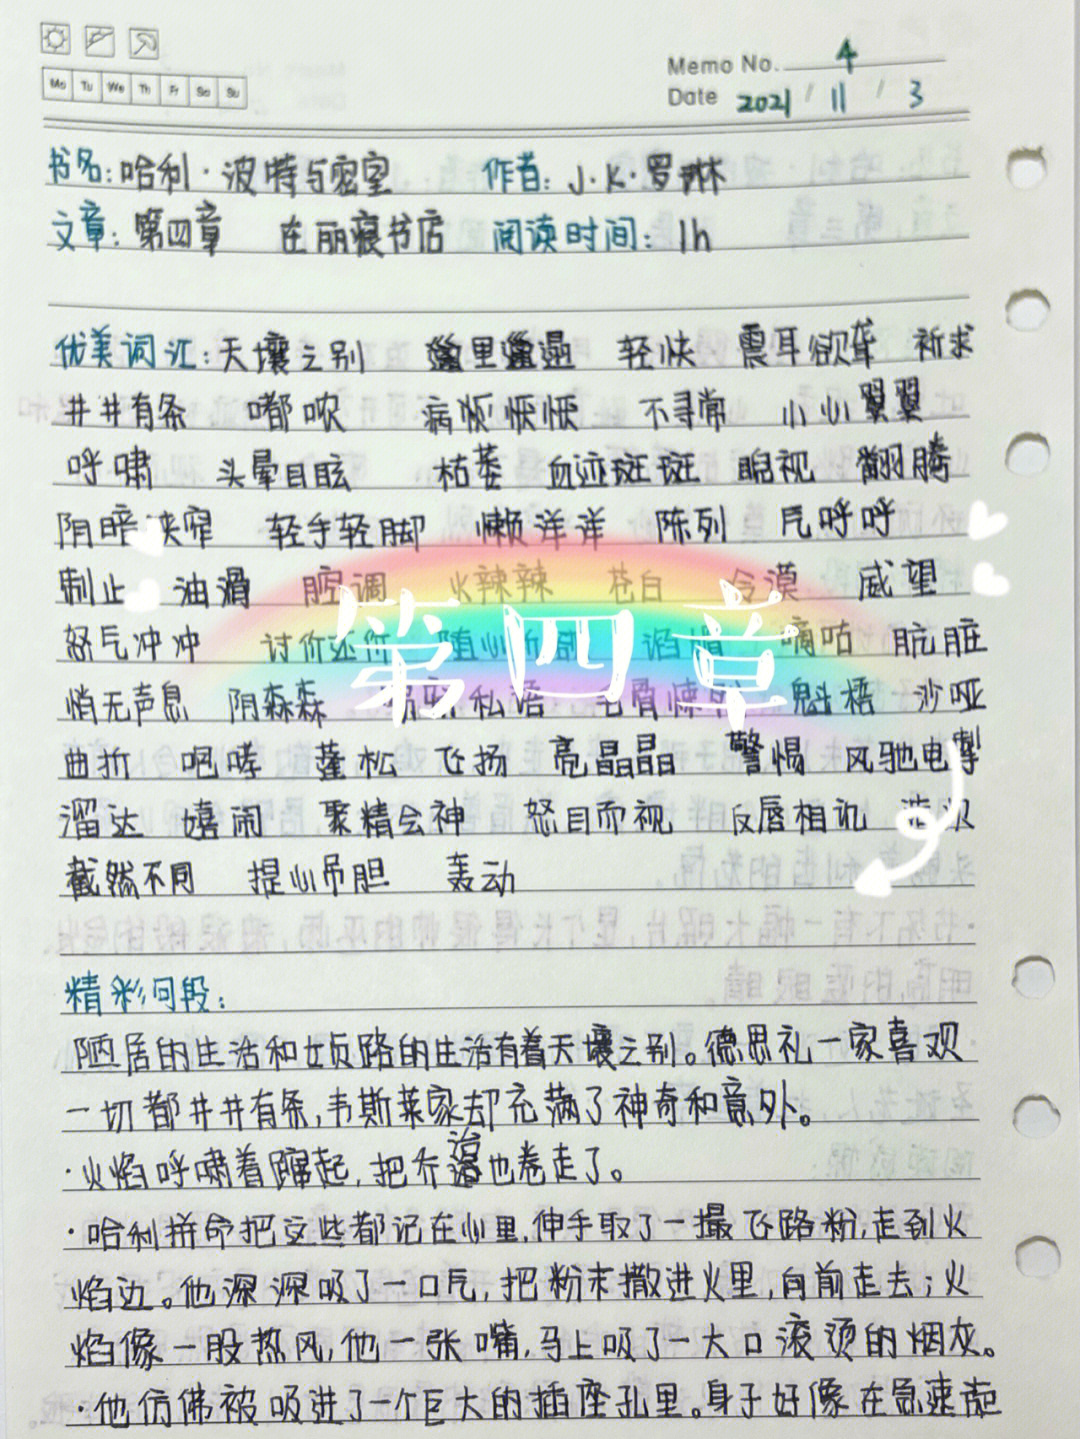 Mo Tu We Th Fr Sa Su
Memo No. 4
Date 2021 / 11 / 3
书名:哈利·波特与密室 作者:J.K.罗琳
文章:第四章 在丽痕书店 阅读时间:1h
优美词汇:天壤之别 邋里邋遢 轻快 震耳欲聋 祈求
井井有条 嘟哝 病恹恹 不寻常 小心翼翼
呼啸 头晕目眩 枯萎 血迹斑斑 睨视 翻腾
阴暗狭窄 轻手轻脚 懒洋洋 陈列 气呼呼
制止 油滑 腔调 火辣辣 苍白 冷漠 威望
怒气冲冲 讨价还价 随心所欲 谄媚 嘀咕 肮脏
悄无声息 阴森森 窃窃私语 毛骨悚然 魁梧 沙哑
曲折 咆哮 蓬松 飞扬 亮晶晶 警惕 风驰电掣
溜达 嬉闹 聚精会神 怒目而视 反唇相讥
截然不同 提心吊胆 轰动
第四章
精彩句段:
陋居的生活和女贞路的生活有着天壤之别。德思礼一家喜欢
一切都井井有条,韦斯莱家却充满了神奇和意外。
·火焰呼啸着蹿起,把乔治也卷走了。
·哈利拼命把这些都记在心里,伸手取了一撮飞路粉,走到火
焰边。他深深吸了一口气,把粉末撒进火里,向前走去;火
焰像一股热风,他一张嘴,马上吸了一大口滚烫的烟灰。
·他仿佛被吸进了一个巨大的插座孔里。身子好像在急速旋